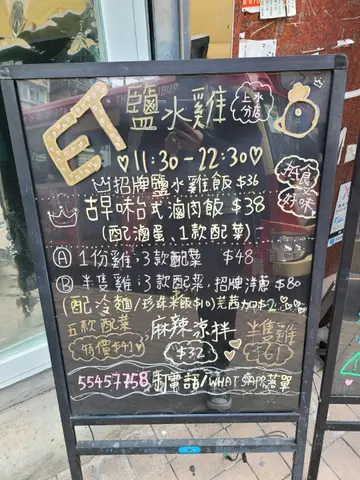 ET 鹽水雞 上水分店
11:30-22:30
招牌鹽水雞飯 $36
抵食 好味
古早味台式滷肉飯 $38
(配滷蛋、1款配菜)
A 1份雞+3款配菜 $48
B 半隻雞+3款配菜,招牌洋蔥 $80
(配冷麵/珍珠米飯$10)芫茜加$2
五款配菜 特價$41
麻辣涼拌 $32
半隻雞 $61
55457758 打電話/WHATSAPP落單